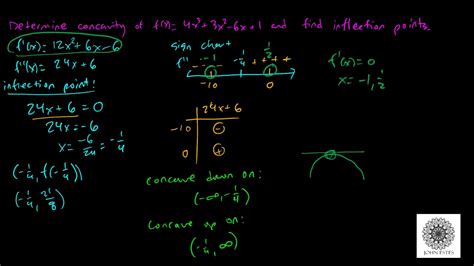 Determine concavity of f(x) = 4x³+3x²-6x+1 and find inflection points.
f'(x) = 12x²+6x-6
f"(x) = 24x+6
inflection point!
24x+6 = 0
24x = -6
x = -6/24 = -1/4
(-1/4, f(-1/4))
(-1/4, 21/8)
sign chart
f"
- - -1 - -1/4 + + 1/2 + + +
-10 0
24x+6
-10 -
0 +
concave down on:
(-∞, -1/4)
concave up on:
(-1/4, ∞)
f'(x) = 0
x = -1, 1/2
JOHN ESTES